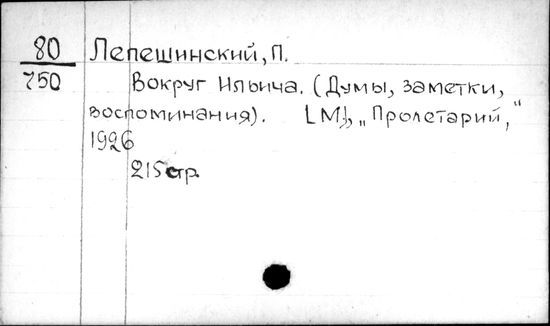 80 Лепешинский, П.
750 Вокруг Ильича. (Думы, заметки,
воспоминания). [М], „Пролетарий,“
1926
215 стр.